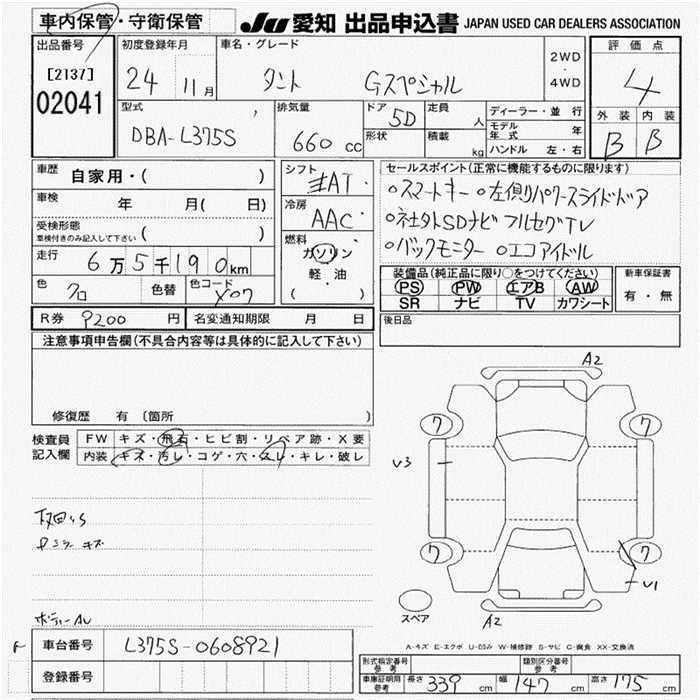 車内保管・守衛保管
JU 愛知 出品申込書 JAPAN USED CAR DEALERS ASSOCIATION
出品番号 初度登録年月 車名・グレード 2WD・4WD 評価点
[2137] 24 11月 タント Gスペシャル 4
02041
型式 排気量 ドア 定員 ディーラー・並行 外装 内装
DBA-L375S 660cc 5D 人 モデル年式 年 B B
形状 積載 kg ハンドル 左・右
車歴 自家用・( ) シフト セールスポイント(正常に機能するものに限ります)
AT
車検 年 月( 日) 冷房 AAC
○スマートキー ○左側パワースライドドア
○社外SDナビ フルセグTV
○バックモニター ○エコアイドル
受検形態 車検付きのみ記入して下さい ( ) 燃料 ガソリン
走行 6万5千190km 軽・油 ( )
装備品(純正品に限り○をつけてください) 新車保証書
PS PW エアB AW 有・無
SR ナビ TV カワシート
色 クロ 色替 色コード X07
R券 9200円 名変通知期限 月 日 後日品
注意事項申告欄(不具合内容等は具体的に記入して下さい)
修復歴 有 〔箇所 〕
検査員記入欄 FW キズ・飛石・ヒビ割・リペア跡・X要
内装 キズ・汚レ・コゲ・穴・スレ・キレ・破レ
A2
7 7
V3
7 7
V1
スペア
A2
ミラーキズ
ボディーAU
A-キズ E-エクボ U-凹み W-補修跡 S-サビ C-腐食 XX-交換済
車台番号 L375S-0608921
登録番号
形式指定番号 参考 類別区分番号 参考
車庫証明用 参考 長さ 339cm 幅 147cm 高さ 175cm